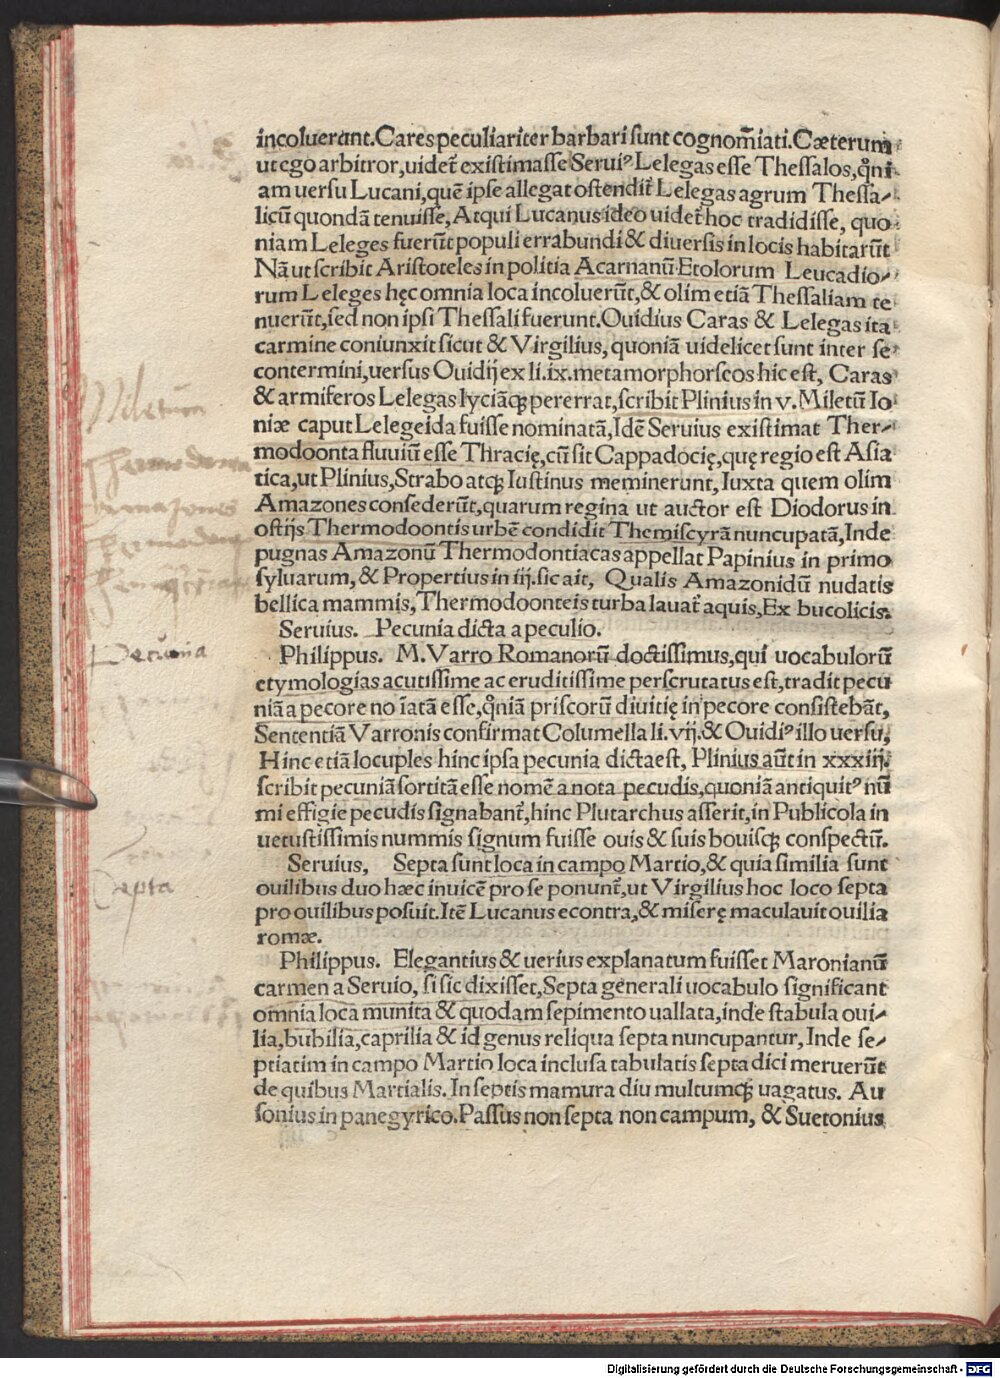 incoluerunt.Cares peculiariter barbari sunt cognom̄iati.Cæterum
ut ego arbitror,uidet̄ existimasse Serui⁹ Lelegas esse Thessalos,qn̄i
am uersu Lucani,quē ipse allegat ostendit̄ Lelegas agrum Thessa-
licū quondā tenuisse,Atqui Lucanus ideo uidet̄ hoc tradidisse, quo
niam Leleges fuerūt populi errabundi & diuersis in locis habitarūt
Nā ut scribit Aristoteles in politia Acarnanū Etolorum Leucadio-
rum Leleges hęc omnia loca incoluerūt,& olim etiā Thessaliam te
nuerūt,sed non ipsi Thessali fuerunt.Ouidius Caras & Lelegas ita
carmine coniunxit sicut & Virgilius, quoniā uidelicet sunt inter se
contermini,uersus Ouidij ex li.ix.metamorphoseos hic est, Caras
& armiferos Lelegas lyciāqȝ pererrat,scribit Plinius in v. Miletū Io
niæ caput Lelegeida fuisse nominatā,Idē Seruius existimat Ther-
modoonta fluuiū esse Thracię,cū sit Cappadocię,quę regio est Asia
tica,ut Plinius,Strabo atqȝ Iustinus meminerunt,Iuxta quem olim
Amazones consederūt,quarum regina ut auctor est Diodorus in
ostijs Thermodoontis urbē condidit Themiscyrā nuncupatā,Inde
pugnas Amazonū Thermodontiacas appellat Papinius in primo
syluarum,& Propertius in iij.sic ait, Qualis Amazonidū nudatis
bellica mammis,Thermodoonteis turba lauat̄ aquis,Ex bucolicis.
Seruius. Pecunia dicta a peculio.
Philippus. M.Varro Romanorū doctissimus,qui uocabulorū
etymologias acutissime ac eruditissime perscrutatus est,tradit pecu
niā a pecore no īatā esse,qn̄iā priscorū diuitię in pecore consistebāt,
Sententiā Varronis confirmat Columella li.vij.& Ouidi⁹ illo uersu,
Hinc etiā locuples hinc ipsa pecunia dicta est, Plinius aūt in xxxiij.
scribit pecuniā sortitā esse nomē a nota pecudis,quoniā antiquit⁹ nū
mi effigie pecudis signabant̄,hinc Plutarchus asserit,in Publicola in
uetustissimis nummis signum fuisse ouis & suis bouisqȝ conspectū.
Seruius, Septa sunt loca in campo Martio,& quia similia sunt
ouilibus duo hæc inuicē pro se ponunt̄,ut Virgilius hoc loco septa
pro ouilibus posuit.Itē Lucanus econtra,& miserę maculauit ouilia
romæ.
Philippus. Elegantius & uerius explanatum fuisset Maronianū
carmen a Seruio, si sic dixisset,Septa generali uocabulo significant
omnia loca munita & quodam sepimento uallata,inde stabula oui-
lia,bubilia,caprilia & id genus reliqua septa nuncupantur, Inde se-
ptiatim in campo Martio loca inclusa tabulatis septa dici meruerūt
de quibus Martialis.In septis mamura diu multumqȝ uagatus. Au
sonius in panegyrico.Passus non septa non campum, & Suetonius
Miletum
Amazones
Pecunia
Septa
Digitalisierung gefördert durch die Deutsche Forschungsgemeinschaft - DFG